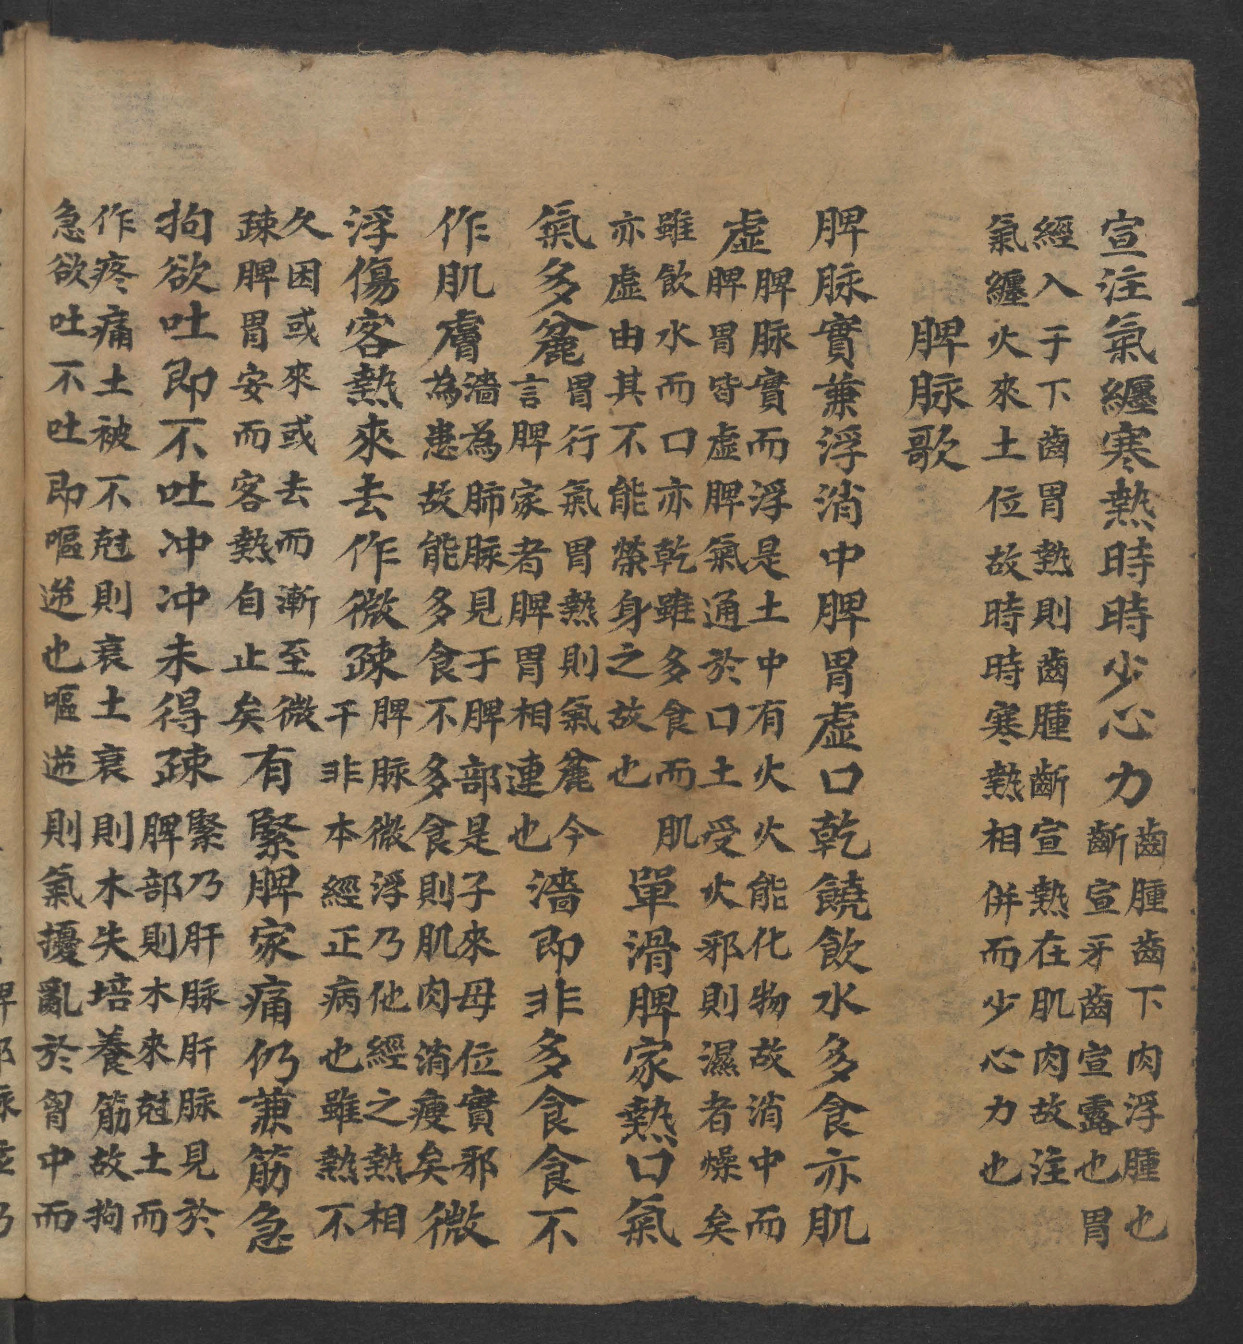 宣注氣纒寒熱時時少心力
齒腫齒下肉浮腫也
齗宣牙齒宣露也胃
經入于下齒胃熱則齒腫齗宣熱在肌肉故注
氣纒火來土位故時時寒熱相併而少心力也
脾脉歌
脾脉實兼浮消中脾胃虛口乾饒飲水多食亦肌
虛
脾脉實而浮是土中有火火能化物故消中而
脾胃皆虛脾氣通於口土受火邪則濕者燥矣
雖飲水而口亦乾雖多食而肌
亦虛由其不能榮身之故也
單滑脾家熱口氣
氣多麄
胃行氣胃熱則氣麄今
言脾家者脾胃相連也
濇即非多食食不
作肌膚
濇為肺脉見于脾部是子來母位實邪
為患故能多食不多食則肌肉消瘦矣
微
浮傷客熱來去作微疎
脾脉微浮乃他經之熱相
干非本經正病也雖熱不
久因或來或去而漸至微
疎脾胃安而客熱自止矣
有緊脾家痛仍兼筋急
拘欲吐即不吐冲冲未得疎
緊乃肝脉肝脉見於
脾部則木來尅土而
作疼痛土被不尅則衰土衰則木失培養筋故拘
急欲吐不吐即嘔逆也嘔逆則氣擾亂於胷中而